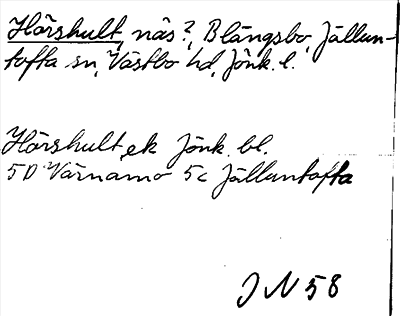 Hårshult, näs?, Blängsbo, Jällun-
tofta sn, Västbo hd, Jönk. l.
Hårshult ek Jönk. bl.
5D Värnamo 5c Jälluntofta
J N 58